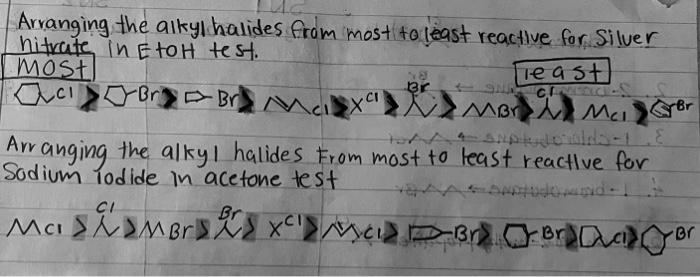 Arranging the alkyl halides from most to least reactive for Silver
nitrate in EtOH test.
most least
Cl > Br > Br > Cl > Cl > Br > Br > Cl > Cl > Br
Arranging the alkyl halides From most to least reactive for
Sodium iodide in acetone test
Cl > Cl > Br > Br > Cl > Cl > Br > Br > Cl > Br